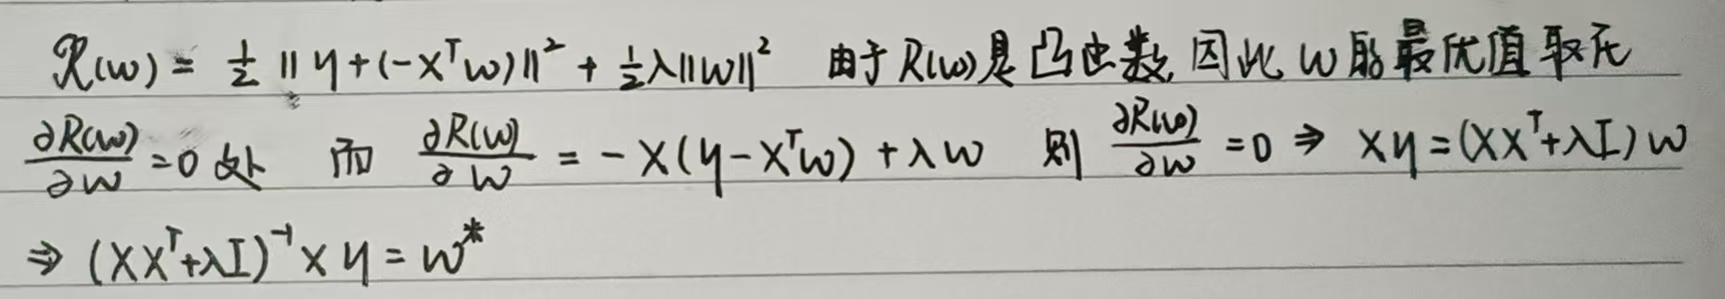 R(w) = ½ ‖y+(-Xᵀw)‖² + ½λ‖w‖² 由于R(w)是凸函数,因此w的最优值取在
∂R(w)/∂w = 0 处 而 ∂R(w)/∂w = -X(y-Xᵀw)+λw 则 ∂R(w)/∂w = 0 ⇒ Xy = (XXᵀ+λI)w
⇒ (XXᵀ+λI)⁻¹Xy = w*